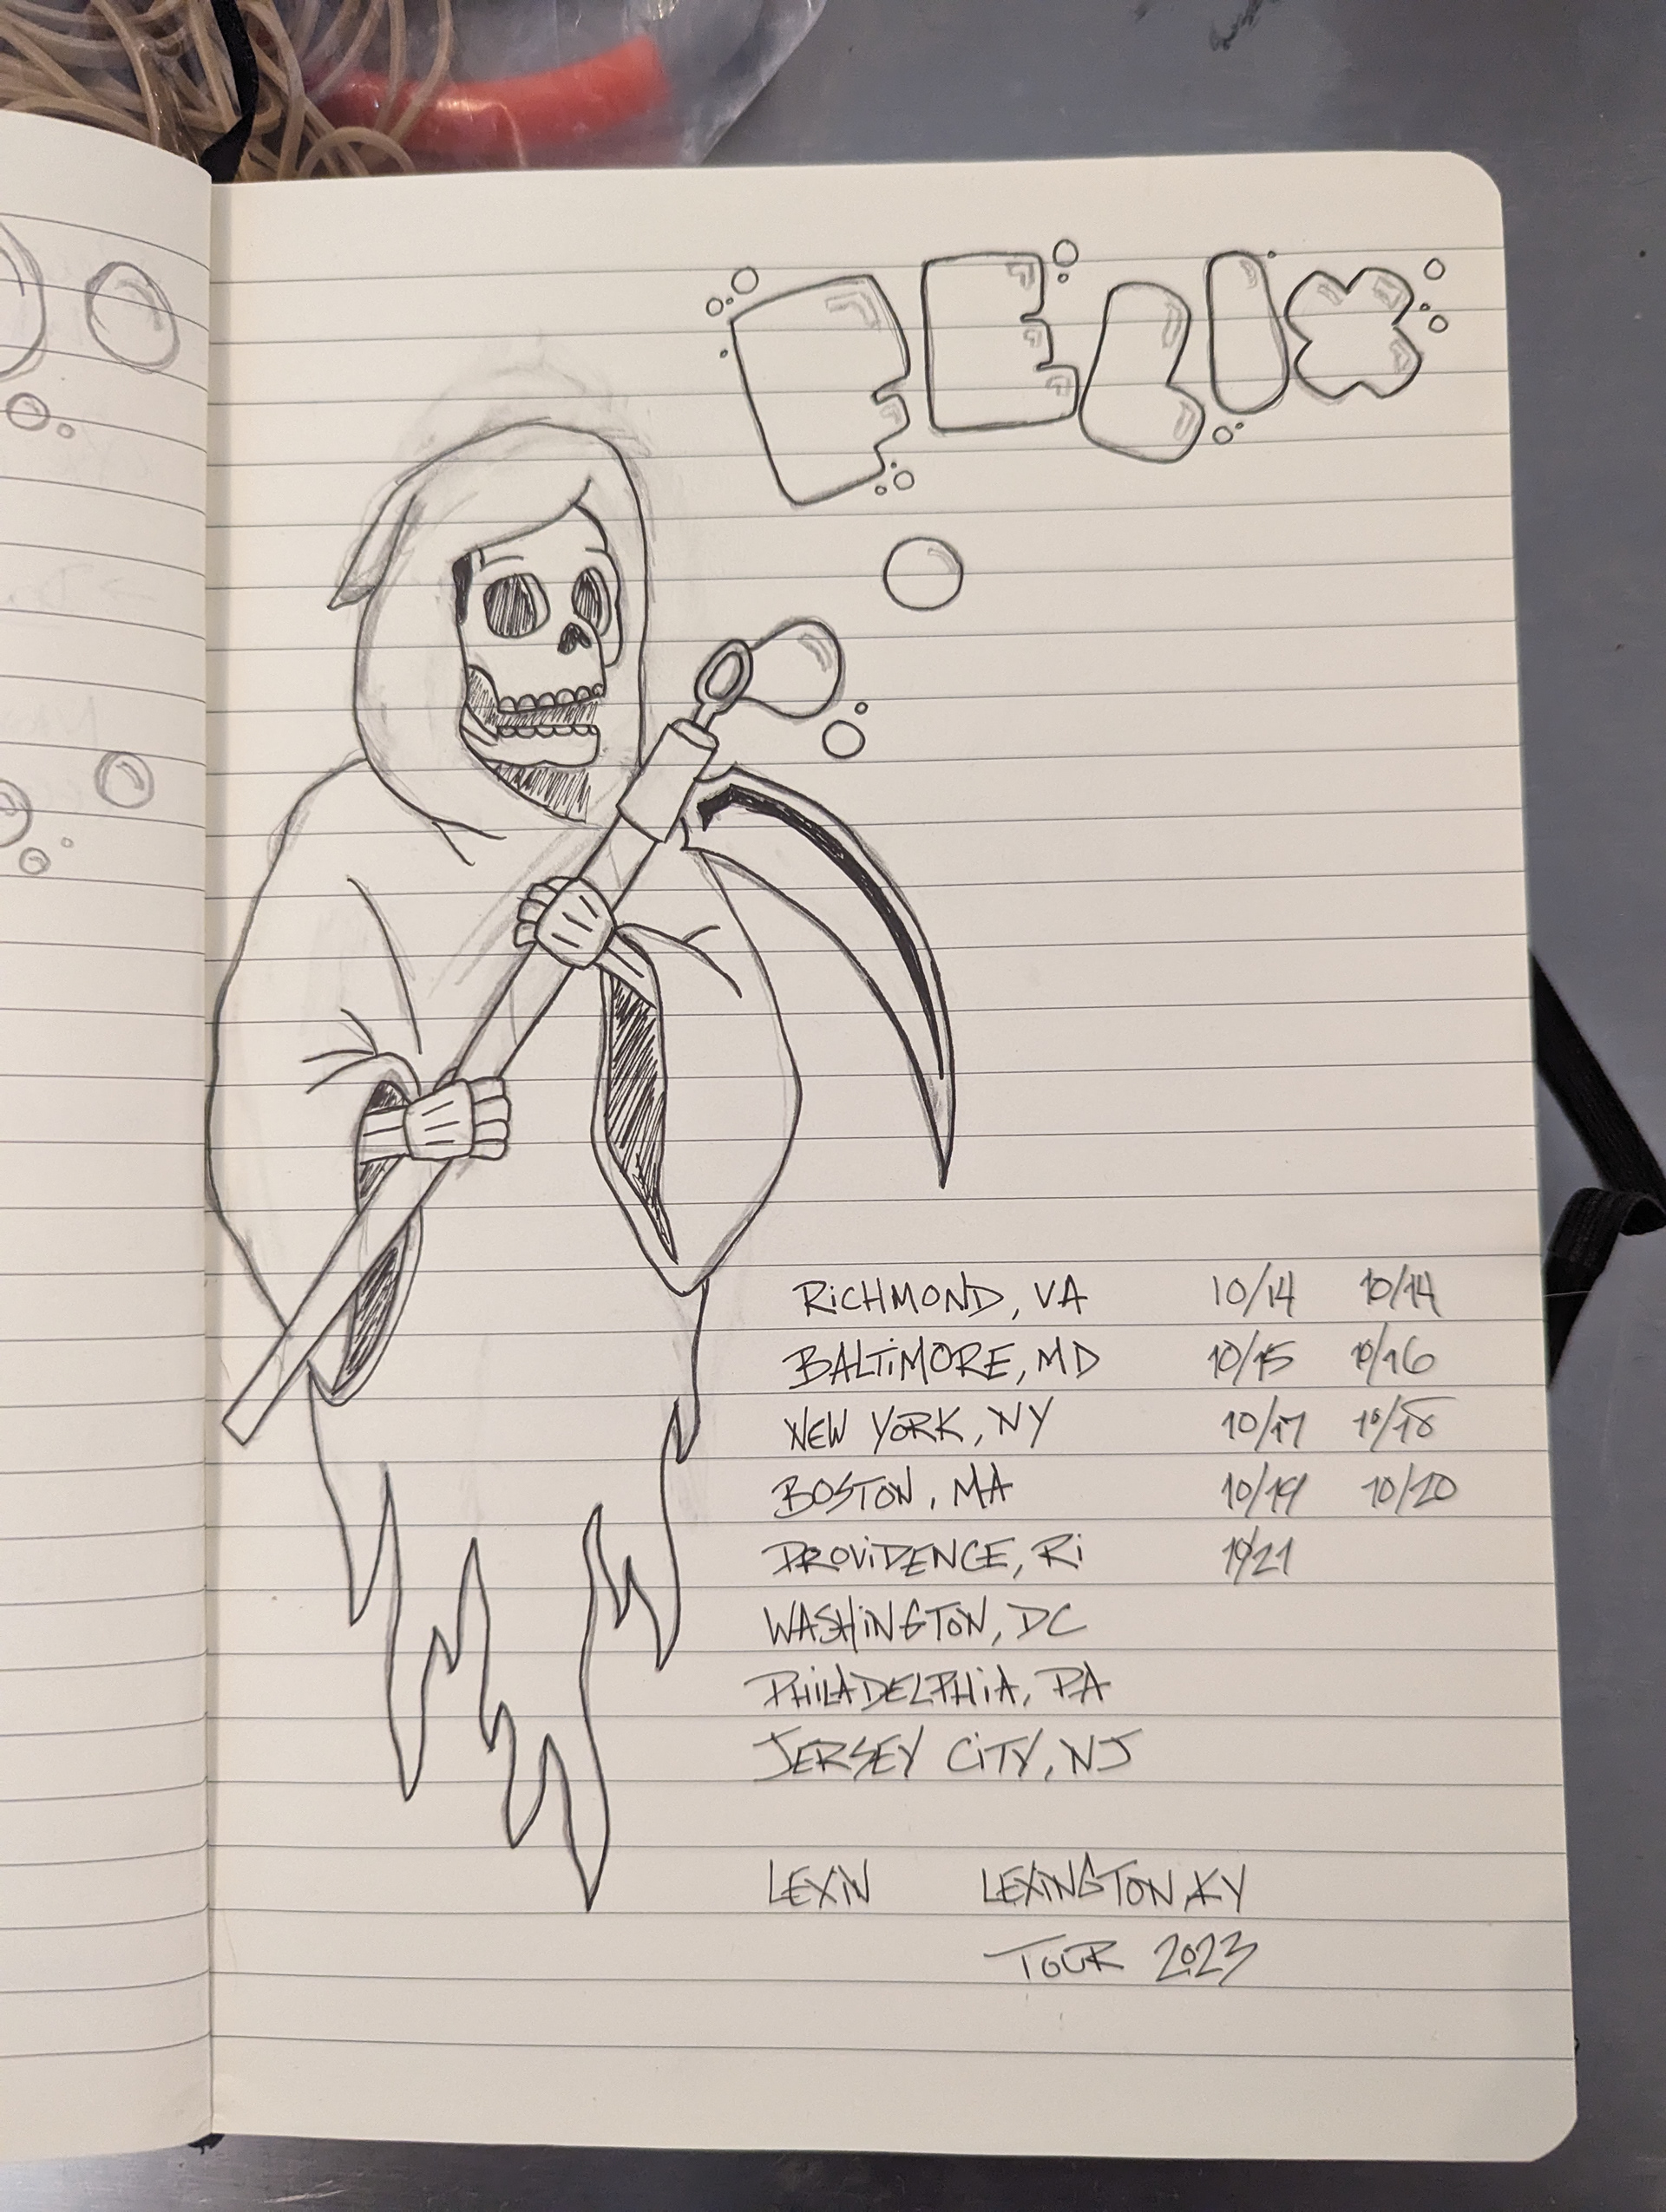 FELIX
RICHMOND, VA 10/14 10/14
BALTIMORE, MD 10/15 10/16
NEW YORK, NY 10/17 10/18
BOSTON, MA 10/19 10/20
PROVIDENCE, RI 10/21
WASHINGTON, DC
PHILADELPHIA, PA
JERSEY CITY, NJ
LEXIN LEXINGTON, KY
TOUR 2023